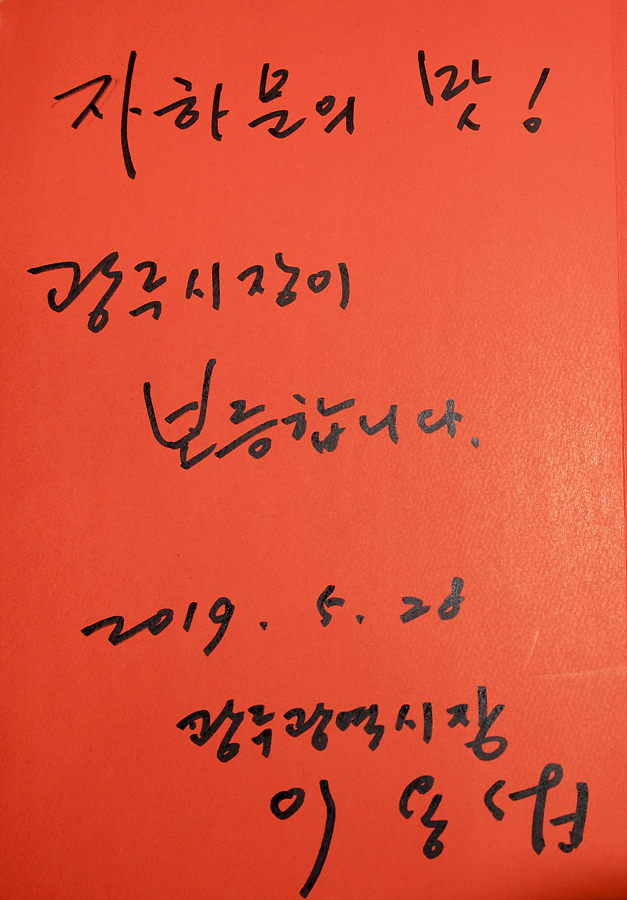 자하문의 맛!
광주시장이
보증합니다.
2019. 5. 28
광주광역시장
이용섭